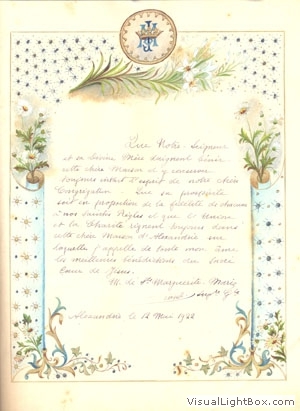 Que Notre Seigneur
et sa Sainte Mère daignent bénir
cette chère Maison et y conserver
toujours l'esprit de notre chère
Congrégation. Que sa prospérité
soit en proportion de la fidélité de chacune
à nos Saintes Règles et que l'Union
et la Charité règnent toujours dans
cette chère Maison d'Alexandrie sur
laquelle j'appelle de toute mon âme
les meilleures bénédictions du Sacré
Cœur de Jésus.
M. de Ste Marguerite Marie
Alexandrie le 12 Mai 1922
VisualLightBox.com